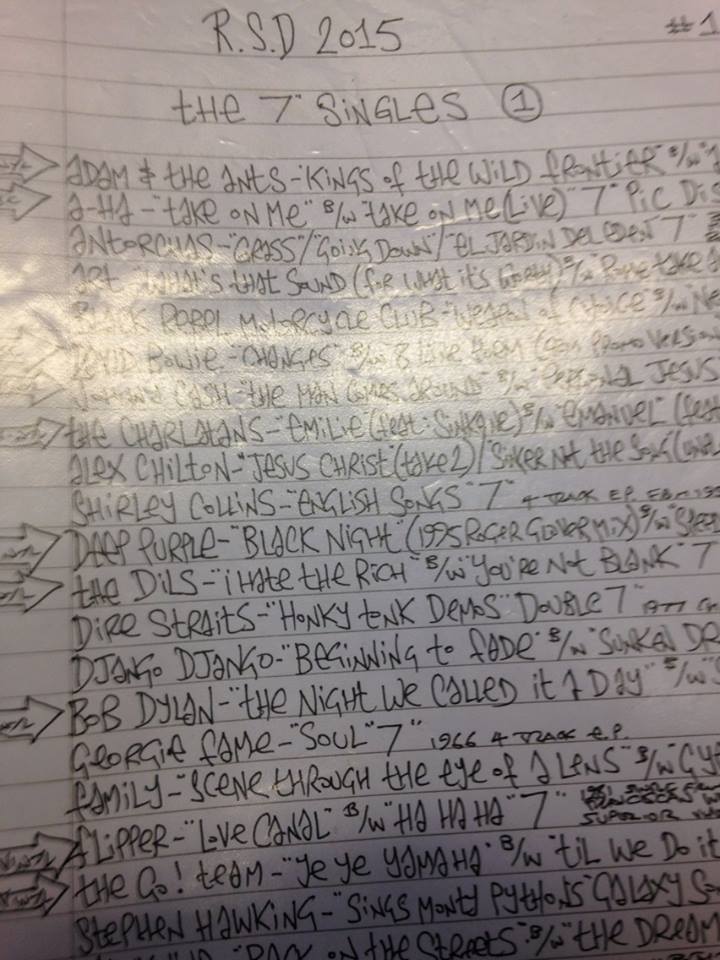 R.S.D 2015 #1
tHE 7" SINGLES ①
ADAM & tHE ANtS-"KINGS of tHE WILD fRONtiER" B/W "
A-HA-"tAKE ON ME" B/W "tAKE ON ME (LIVE)" 7" PIC DIS
ANtORCHAS-"GRASS"/"GOING DOWN"/"EL JARDIN DEL EDEN" 7"
ARt "WHAT'S tHAt SOUND (fOR WHAt it'S WORtH)" B/W tAKE
BLACK REBEL MOtORCYCLE CLUB-"WEAPON of CHOICE" B/W "NE
DAVID BOWIE-"CHANGES" B/W "8 LINE POEM (GEM PROMO VERSIO
JOHNNY CASH-"tHE MAN COMES AROUND" B/W "PERSONAL JESUS
tHE CHARLAtANS-"EMILIE (fEAt: SINKANE)" B/W "EMANUEL" (fEA
ALEX CHILtON-"JESUS CHRISt (tAKE 2)/ NOt tHE SONG
SHIRLEY COLLINS-"ENGLISH SONGS" 7" 4 tRACK E.P.
DEEP PURPLE-"BLACK NIGHt" (1995 ROGER GLOVER MIX) B/W "
tHE DILS-"I HAtE tHE RICH" B/W "YOU'RE NOt BLANK" 7
DIRE StRAItS-"HONKY tONK DEMOS" DOUBLE 7"
DJANGO DJANGO-"BEGINNING tO fADE" B/W "SUNKEN DR
BOB DYLAN-"tHE NIGHt WE CALLED it A DAY" B/W "S
GEORGIE fAME-"SOUL" 7" 1966 4 tRACK E.P.
fAMILY-"SCENE tHROUGH tHE EYE Of A LENS" B/W "GY
fLIPPER-"LOVE CANAL" B/W "HA HA HA" 7" SUPERIOR
tHE GO! tEAM-"YE YE YAMAHA" B/W "tIL WE DO it
StEPHEN HAWKING-"SINGS MONtY PYtHONS GALAXY SO
ON tHE StREEtS" B/W "tHE DREAM